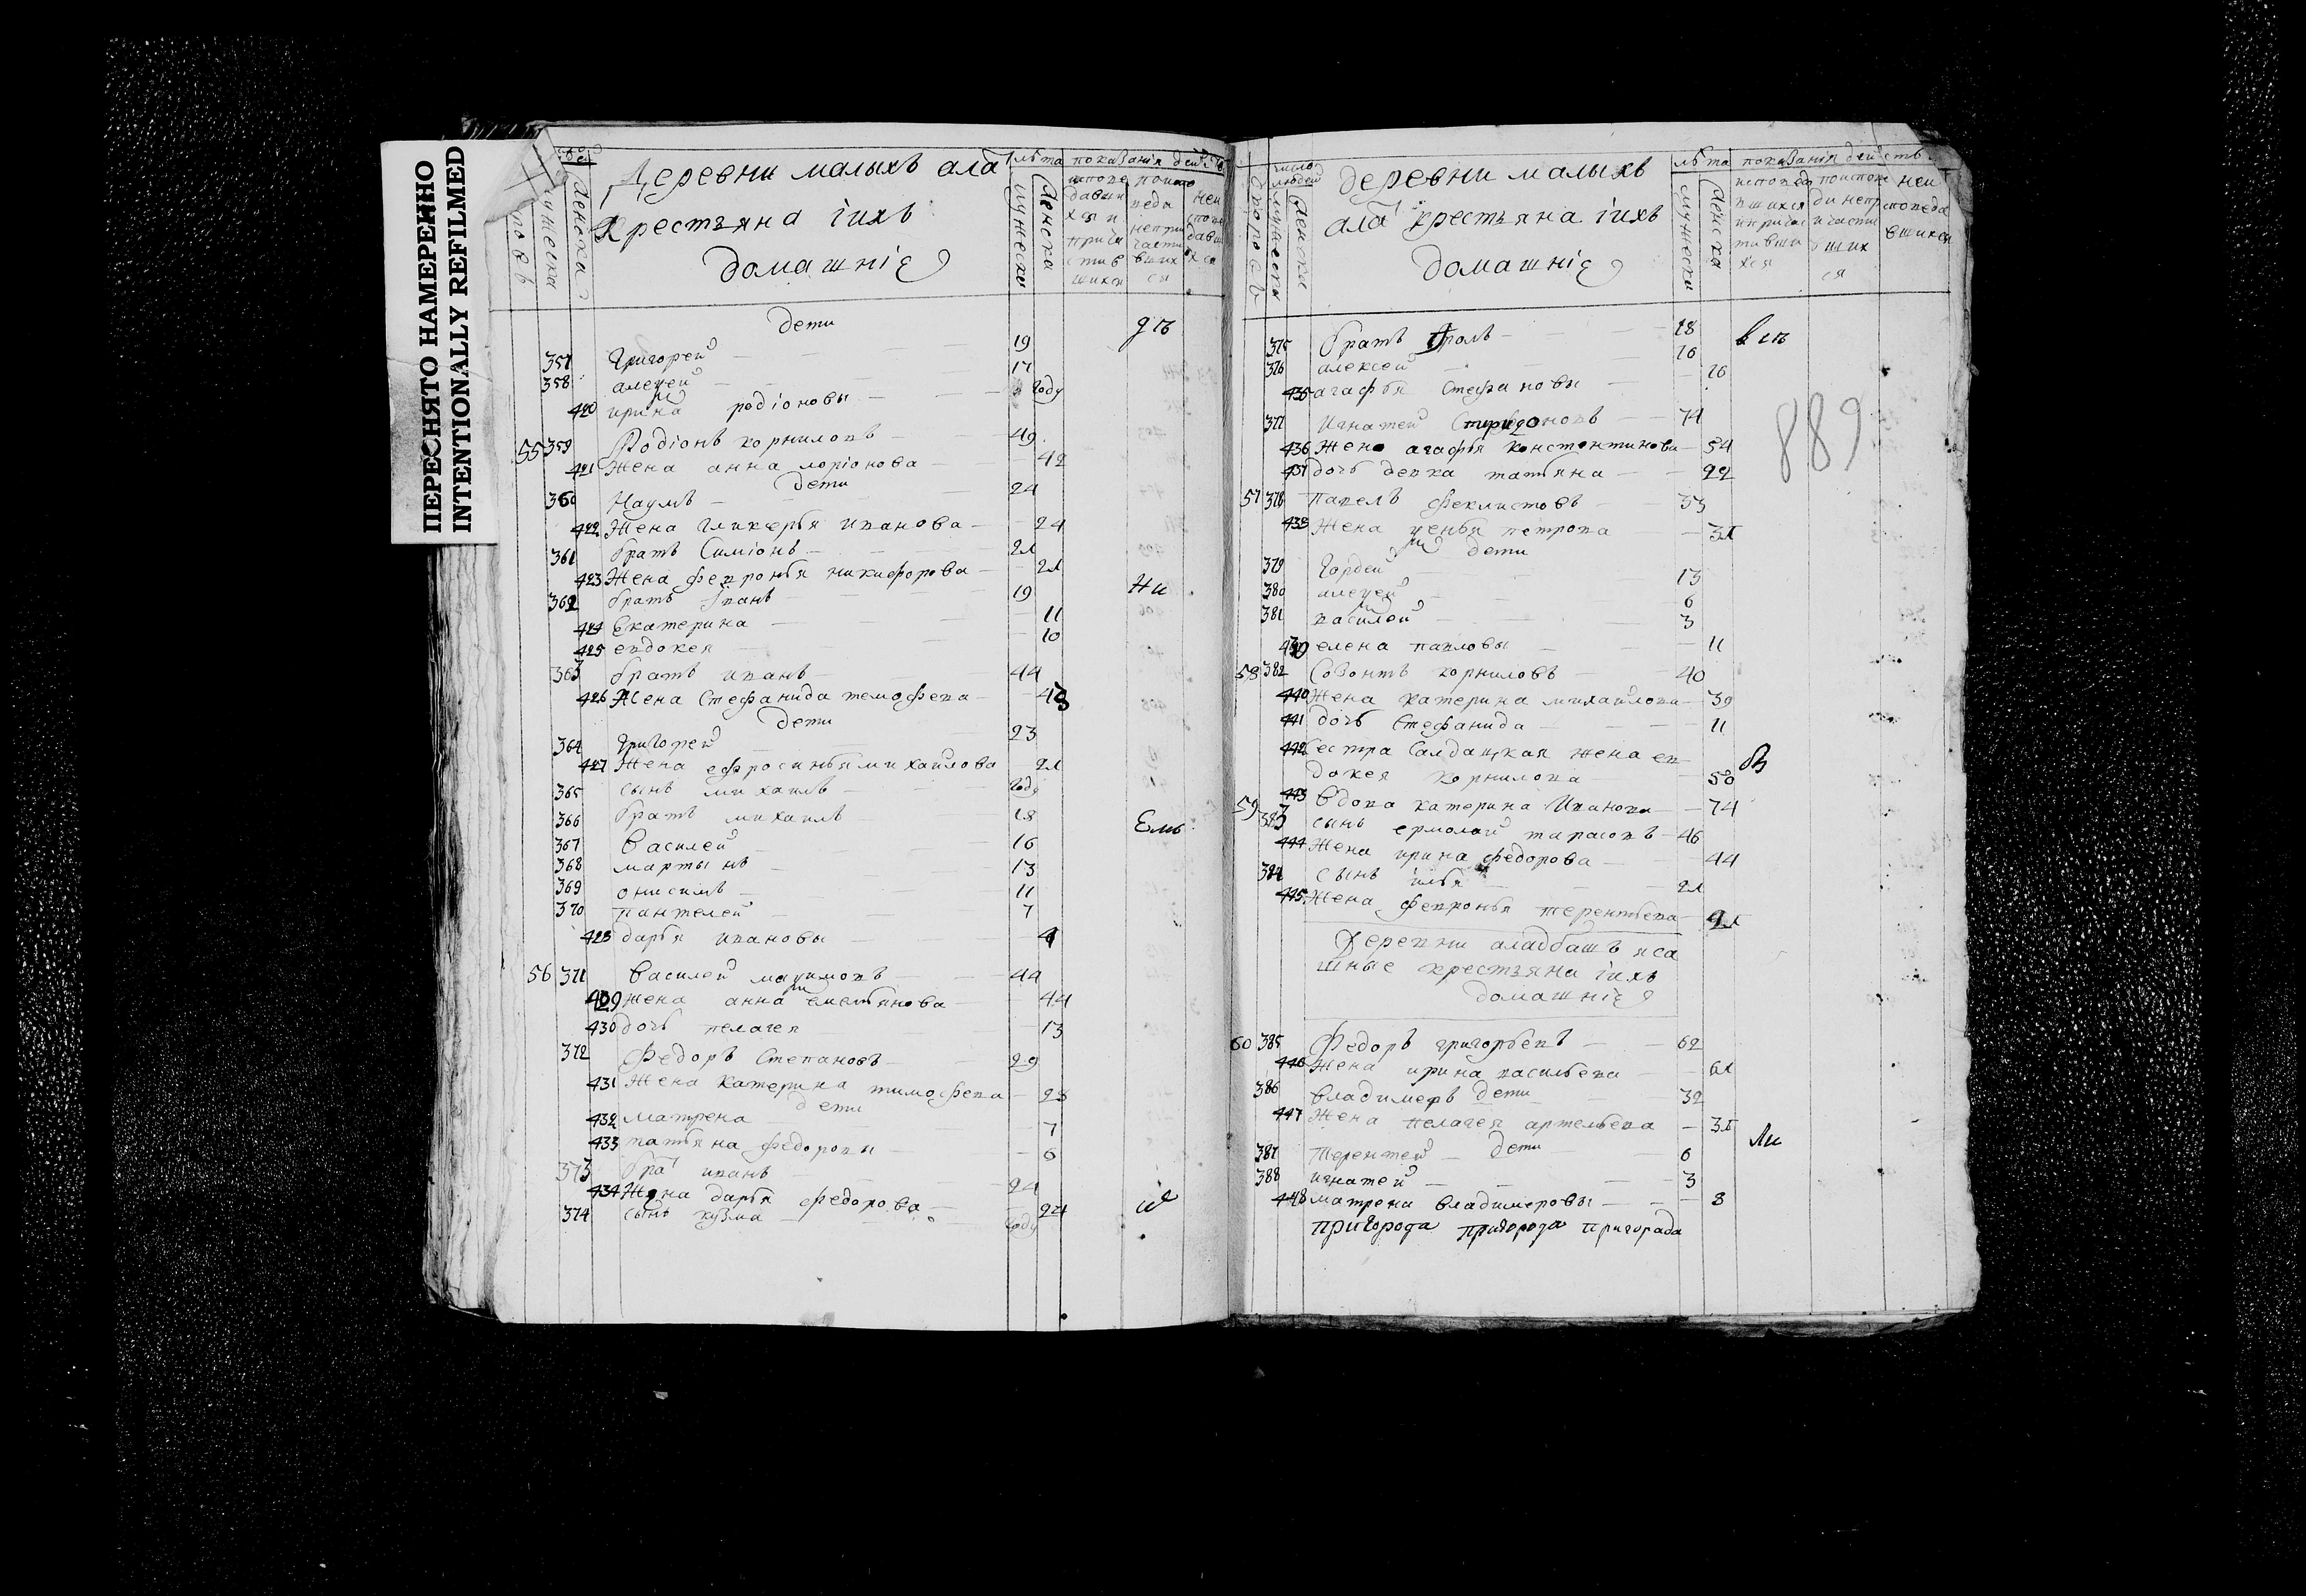 ПЕРЕСНЯТО НАМЕРЕННО
INTENTIONALLY REFILMED
Деревни малыхъ ала
крестьяна іихъ
домашніе
мужеска
женска
лѣта
мужеска
женска
показанія
дети
357 Григорей 19
358 алеѯей 17
420 ирина родіоновы году
55 359 Родіонъ корниловъ 49
421 жена анна лоріонова 42
дети
360 Наумъ 24
422 жена гликерья иванова 24
361 братъ Симіонъ 21
423 жена февронья никифорова 21
362 братъ іванъ 19
424 екатерина 11
425 евдокея 10
363 братъ иванъ 44
426 жена Стефанида темофева 43
дети
364 григорей 23
427 жена ефросинья михаилова 21
365 сынъ михаилъ году
366 братъ михаилъ 18
367 василей 16
368 мартынъ 13
369 онисимъ 11
370 пантелей 7
428 дарья ивановы
56 371 василей маѯимовъ 44
429 жена анна емельянова 44
430 дочь пелагея 13
372 федоръ Степановъ 29
431 жена катерина тимофева 28
дети
432 матрена 7
433 татьяна федоровы 6
373 бра иванъ 24
434 жена дарья федорова 24
374 сынъ кузма году
Ни
число людей
деревни малыхъ
ала крестьяна іихъ
домашніе
лѣта
мужеска
женска
показанія действ
375 братъ фролъ 18
376 алексей 16
435 агафья Стефановы 16
377 Игнатей Спиридоновъ 74
436 жена агафья константинова 54
437 дочь девка татьяна 22
57 378 павелъ феклистовъ 33
438 жена ѯенья петрова 31
дети
379 гордей 13
380 алеѯей 6
381 василей 3
439 елена павловы 11
58 382 Созонтъ корниловъ 40
440 жена катерина михаилова 39
441 дочь Стефанида 11
442 сестра Салдацкая жена ев
докея корнилова 50
59 443 вдова катерина Иванова 74
383 сынъ ермолай тарасовъ 46
444 жена ирина федорова 44
384 сынъ илья 21
445 жена февронья терентьева 21
Деревни аладбашъ яса
шные крестьяна іихъ
домашніе
60 385 федоръ григорьевъ 62
446 жена ирина васильева 61
386 владимеръ дети 32
447 жена пелагея артемьева 31
387 терентей дети 6
388 игнатей 3
448 матрена владимеровы 8
пригорода пригорода пригорада
889